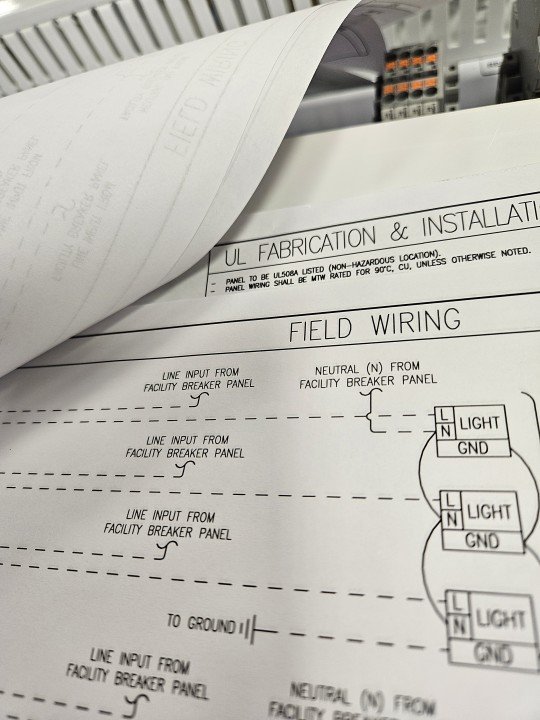 UL FABRICATION & INSTALLATI
- PANEL TO BE UL508A LISTED (NON-HAZARDOUS LOCATION).
- PANEL WIRING SHALL BE MTW RATED FOR 90°C, CU, UNLESS OTHERWISE NOTED.
FIELD WIRING
LINE INPUT FROM
FACILITY BREAKER PANEL
NEUTRAL (N) FROM
FACILITY BREAKER PANEL
L
N
LIGHT
GND
LINE INPUT FROM
FACILITY BREAKER PANEL
L
N
LIGHT
GND
LINE INPUT FROM
FACILITY BREAKER PANEL
L
N
LIGHT
GND
TO GROUND
LINE INPUT FROM
FACILITY BREAKER PANEL
NEUTRAL (N) FROM
FACILITY BREAKER PANEL